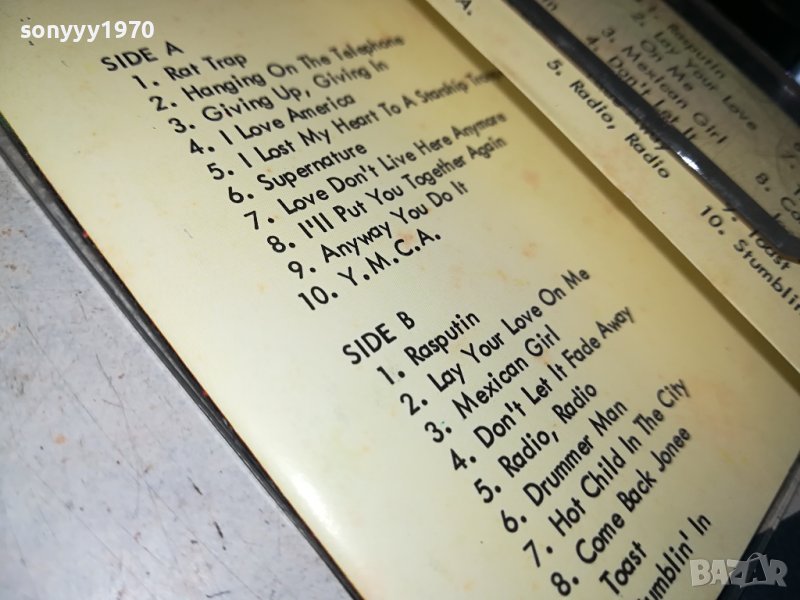 sonyyy1970
SIDE A
1. Rat Trap
2. Hanging On The Telephone
3. Giving Up, Giving In
4. I Love America
5. I Lost My Heart To A Starship
6. Supernature
7. Love Don't Live Here Anymore
8. I'll Put You Together Again
9. Anyway You Do It
10. Y.M.C.A.
SIDE B
1. Rasputin
2. Lay Your Love On Me
3. Mexican Girl
4. Don't Let It Fade Away
5. Radio, Radio
6. Drummer Man
7. Hot Child In The City
8. Come Back Jonee
Toast
Stumblin' In
A.
1. Rasputin
2. Lay Your Love
On Me
3. Mexican Girl
4. Don't Let It
5. Radio, Radio
8.
Toast
10. Stumblin'
BAZAR